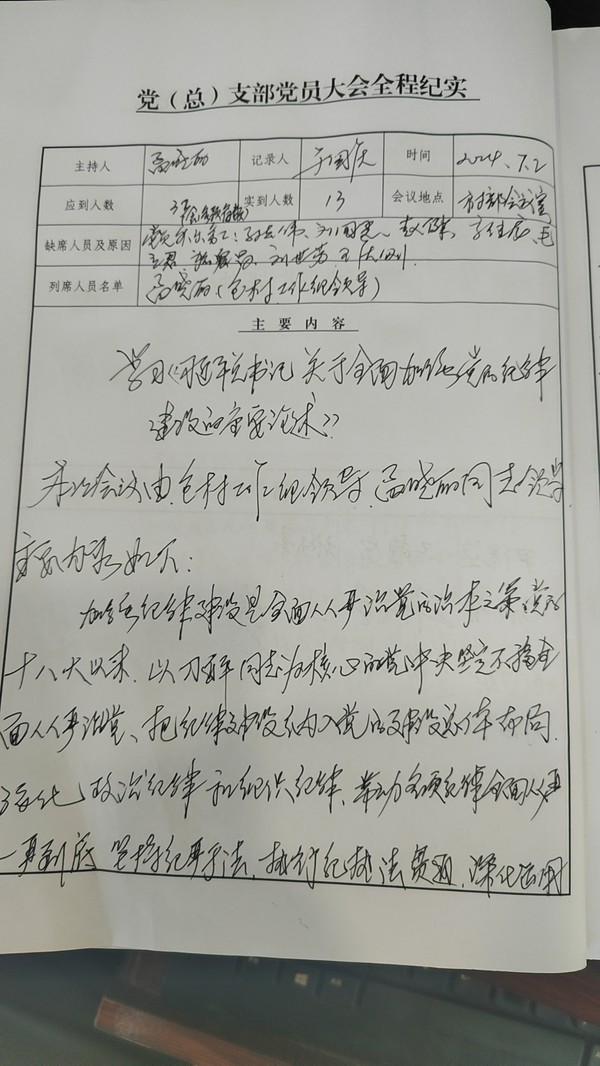 党（总）支部党员大会全程纪实
主持人 记录人 时间 2024.7.2
应到人数 实到人数 13 会议地点 村部会议室
缺席人员及原因
列席人员名单 孟晓丽（包村工作组领导）
主要内容
学习《习近平总书记关于全面加强党的纪律
建设的重要论述》
本次会议由包村工作组领导孟晓丽同志领学
主要内容如下：
加强纪律建设是全面从严治党的治本之策。党的
十八大以来，以习近平同志为核心的党中央坚定不移全
面从严治党、把纪律建设纳入党的建设总体布局
强化政治纪律和组织纪律，带动各项纪律全面从严
一严到底 坚持纪严于法、执纪执法贯通，深化运用